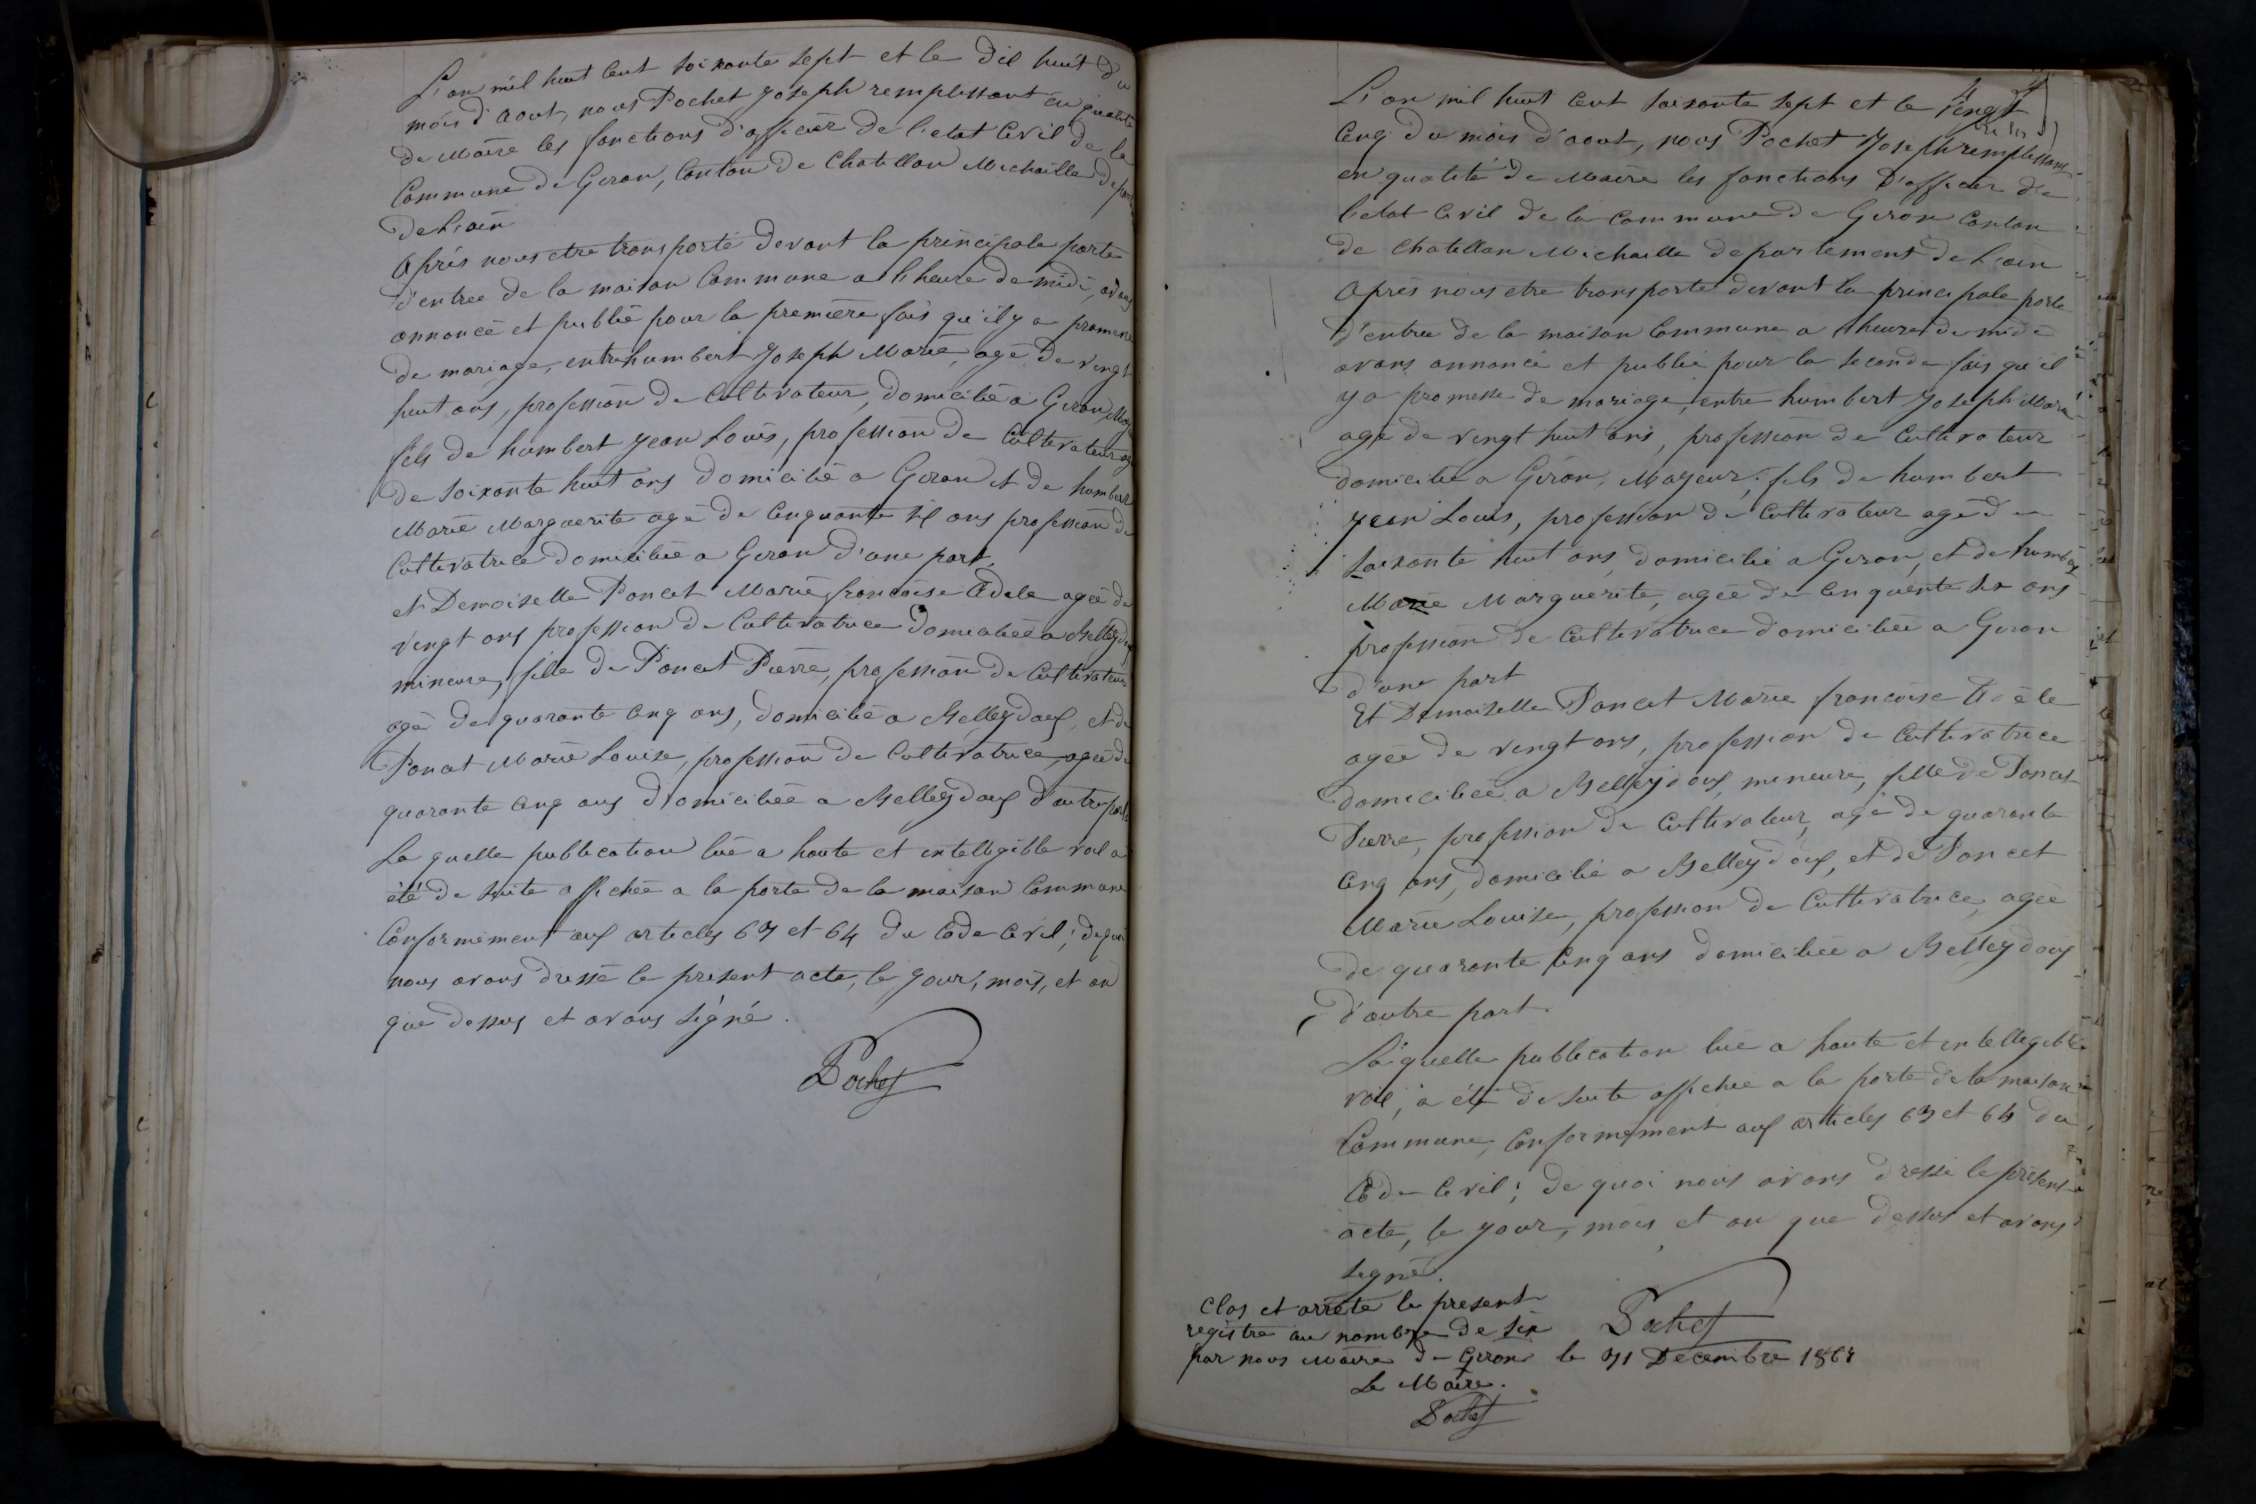 L'an mil huit cent soixante sept et le dix huit du
mois d'aout, nous Pochet Joseph remplissant en qualité
de Maire les fonctions d'officier de l'etat Civil de la
Commune de Giron, Canton de Chatillon Michaille depart
de L'ain
après nous etre transporté devant la principale porte
d'entree de la maison Commune a l'heure de midi, avons
annoncé et publié pour la première fois qu'il y a promesse
de mariage, entre humbert Joseph Marie, agé de vingt
huit ans, profession de Cultivateur, domicilié a Giron, May
fils de humbert Jean Louis, profession de Cultivateur agé
de soixante huit ans domicilié a Giron et de humbert
Marie Marguerite agé de Cinquante six ans profession de
Cultivatrice domiciliée a Giron d'une part,
et Demoiselle Poncet Marie francoise Adele agée de
vingt ans profession de Cultivatrice domiciliée a Belleydoux
mineure, fille de Poncet Pierre, profession de Cultivateur
agé de quarante cinq ans, domicilié a Belleydoux, et de
Poncet Marie Louise, profession de Cultivatrice agée de
quarante cinq ans domiciliée a Belleydoux d'autre part
La quelle publication lue a haute et intelligible voix a
été de suite affichée a la porte de la maison Commune
Conformement aux articles 63 et 64 du Code Civil; de quoi
nous avons dressé le present acte, le jour, mois, et an
que dessus et avons signé.
Pochet
L'an mil huit cent soixante sept et le vingt
Cinq du mois d'aout, nous Pochet Joseph remplissant
en qualité de Maire les fonctions d'officier de
l'etat Civil de la Commune de Giron Canton
de Chatillon Michaille departement de L'ain
après nous etre transporté devant la principale porte
d'entree de la maison Commune a l'heure de midi
avons annoncé et publié pour la seconde fois qu'il
y a promesse de mariage, entre humbert Joseph Marie
agé de vingt huit ans, profession de Cultivateur
domicilié a Giron, Mayeur, fils de humbert
Jean Louis, profession de Cultivateur agé de
soixante huit ans, domicilié a Giron, et de humbert
Marie Marguerite, agée de Cinquante six ans
profession de Cultivatrice domiciliée a Giron
d'une part
Et Demoiselle Poncet Marie francoise Adèle
agée de vingt ans, profession de Cultivatrice
domiciliée a Belleydoux, mineure, fille de Poncet
Pierre, profession de Cultivateur, agé de quarante
Cinq ans, domicilié a Belleydoux, et de Poncet
Marie Louise, profession de Cultivatrice, agée
de quarante Cinq ans domiciliée a Belleydoux
d'autre part.
La quelle publication lue a haute et intelligible
voix, a été de suite affichée a la porte de la maison
Commune, Conformement aux articles 63 et 64 du
Code Civil; de quoi nous avons dressé le present
acte, le jour, mois et an que dessus et avons
signé.
Pochet
Clos et arrêté le present
registre au nombre de six
par nous Maire de Giron le 31 Decembre 1867
Le Maire.
Pochet